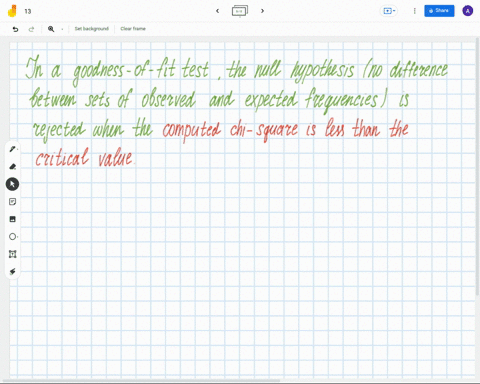 13
Share
A
Set background
Clear frame
In a goodness-of-fit test, the null hypothesis (no difference
between sets of observed and expected frequencies) is
rejected when the computed chi-square is less than the
critical value